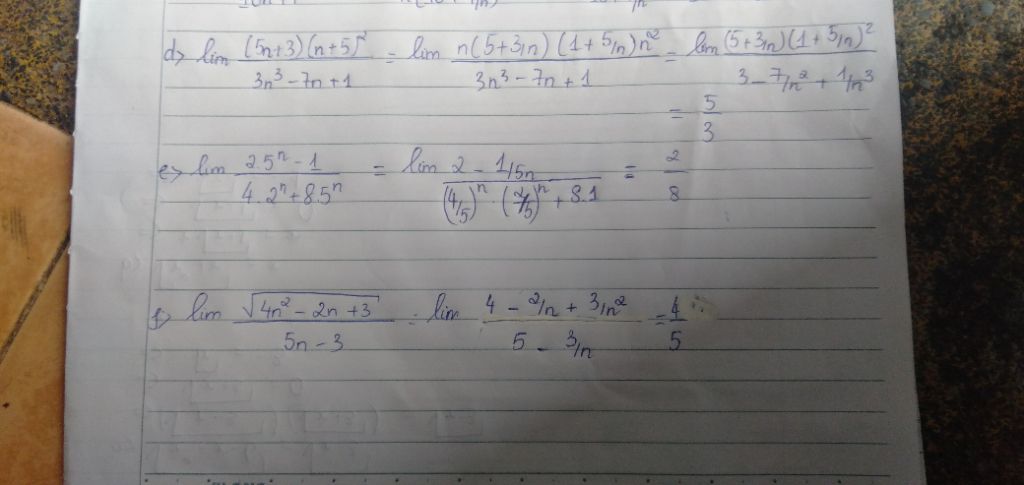 d) lim (5n+3)(n+5)² / 3n³ - 7n + 1 = lim n(5+3/n)(1+5/n)n² / 3n³ - 7n + 1 = lim (5+3/n)(1+5/n)² / 3 - 7/n² + 1/n³
= 5/3
e) lim 2.5ⁿ - 1 / 4.2ⁿ + 8.5ⁿ = lim 2 - 1/5n / (4/5)ⁿ . (2/5)ⁿ + 8.1 = 2/8
f) lim √4n² - 2n + 3 / 5n - 3 = lim 4 - 2/n + 3/n² / 5 - 3/n = 4/5